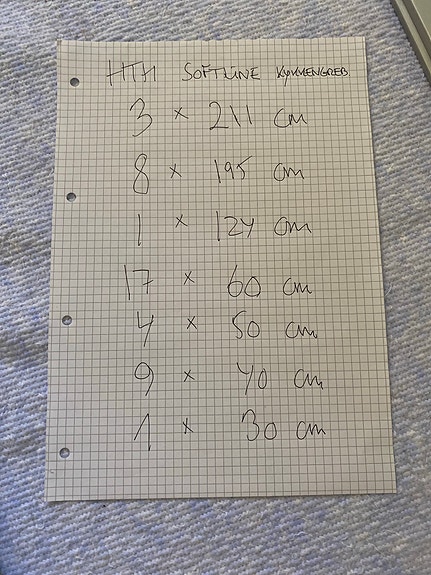 HTH SOFTLINE KØKKENGREB
3 x 211 cm
8 x 195 cm
1 x 124 cm
17 x 60 cm
4 x 50 cm
9 x 40 cm
1 x 30 cm